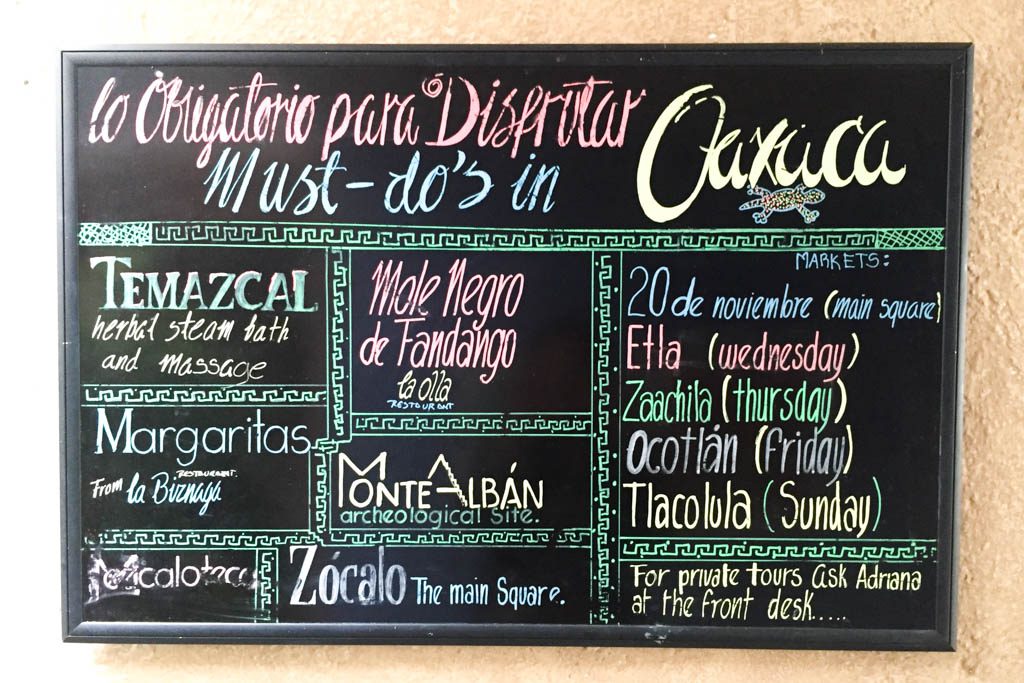 lo Obligatorio para Disfrutar
Must-do's in Oaxaca
TEMAZCAL
herbal steam bath
and massage
Margaritas
From la Biznaga
RESTAURANT.
Mole Negro
de Fandango
la olla
RESTOURANT
MONTE ALBÁN
archeological site.
Zócalo The main Square.
MARKETS:
20 de noviembre (main square)
Etla (wednesday)
Zaachila (thursday)
Ocotlán (friday)
Tlacolula (Sunday)
For private tours ask Adriana
at the front desk.....